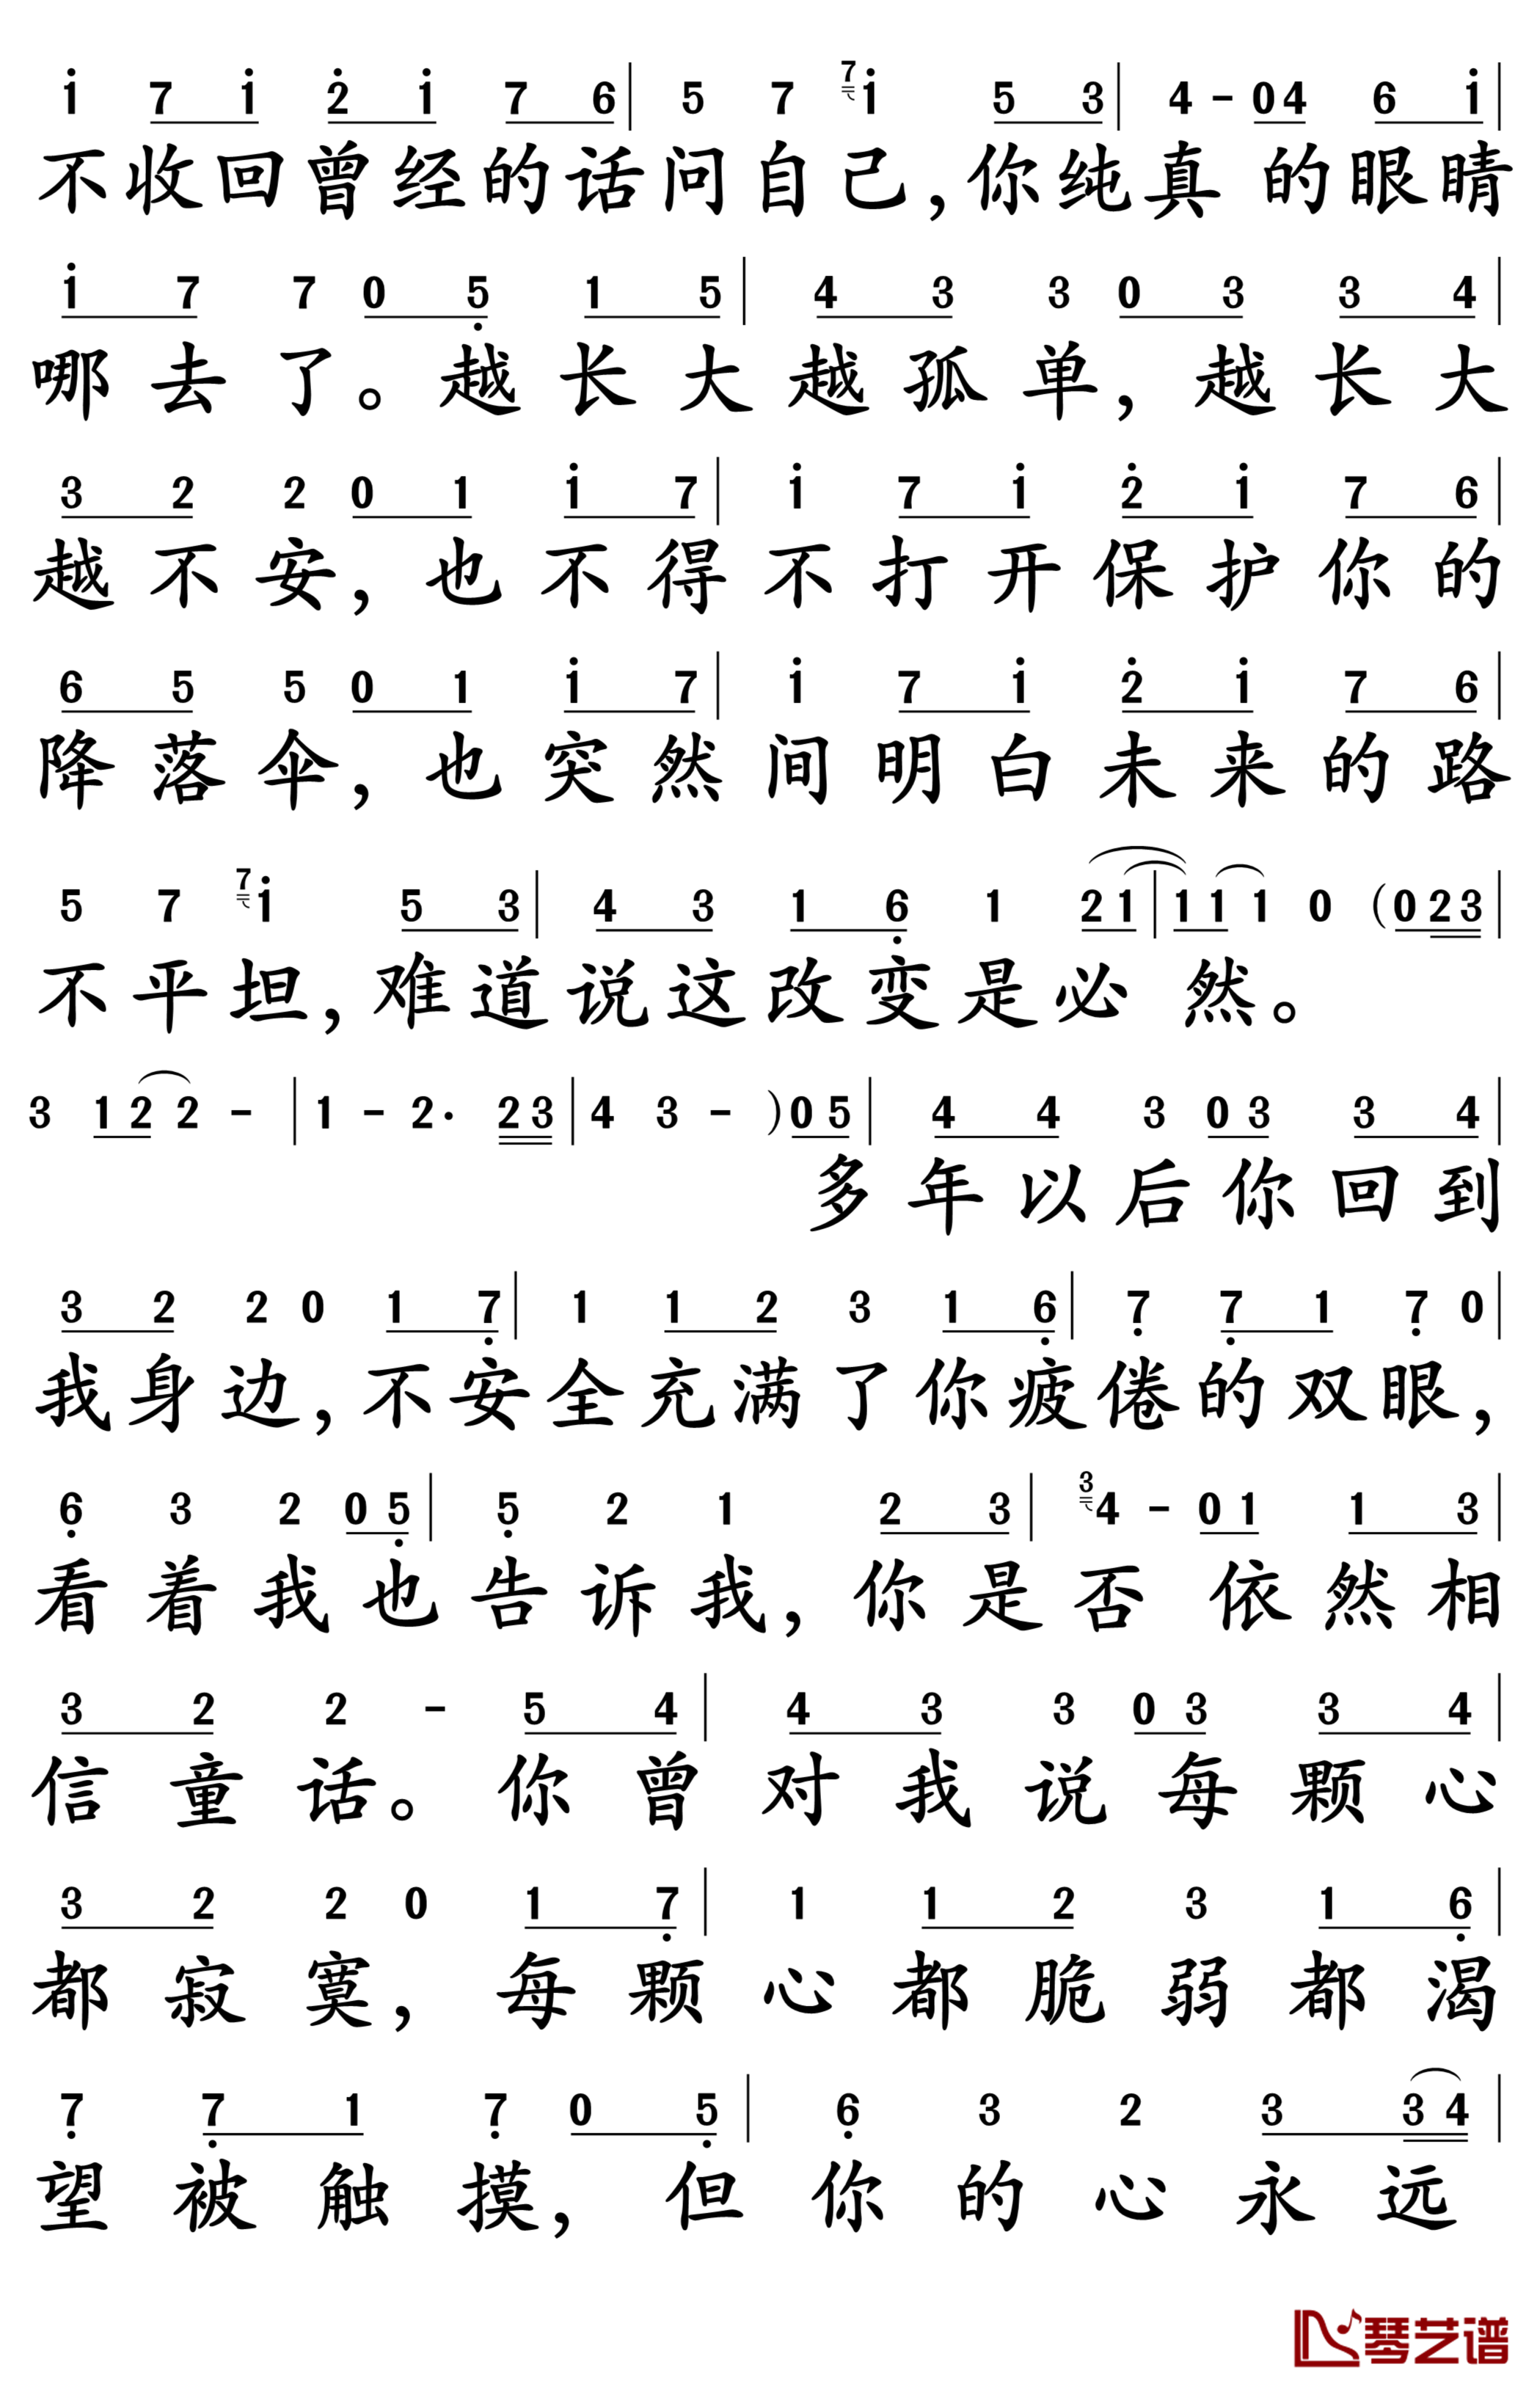 i 7 i 2 i 7 6 | 5 7 7 i 5 3 | 4 - 0 4 6 i |
不收回曾经的话问自己,你纯真的眼睛
i 7 7 0 5 1 5 | 4 3 3 0 3 3 4 |
哪去了。越长大越孤单,越长大
3 2 2 0 1 i 7 | i 7 i 2 i 7 6 |
越不安,也不得不打开保护你的
6 5 5 0 1 i 7 | i 7 i 2 i 7 6 |
降落伞,也突然间明白未来的路
5 7 7 i 5 3 | 4 3 1 6 1 2 1 | 1 1 1 0 (0 2 3 |
不平坦,难道说这改变是必然。
3 1 2 2 - | 1 - 2· 2 3 | 4 3 - ) 0 5 | 4 4 3 0 3 3 4 |
多年以后你回到
3 2 2 0 1 7 | 1 1 2 3 1 6 | 7 7 1 7 0 |
我身边,不安全充满了你疲倦的双眼,
6 3 2 0 5 | 5 2 1 2 3 | 3 4 - 0 1 1 3 |
看着我也告诉我,你是否依然相
3 2 2 - 5 4 | 4 3 3 0 3 3 4 |
信童话。你曾对我说每颗心
3 2 2 0 1 7 | 1 1 2 3 1 6 |
都寂寞,每颗心都脆弱都渴
7 7 1 7 0 5 | 6 3 2 3 3 4 |
望被触摸,但你的心永远
琴艺谱